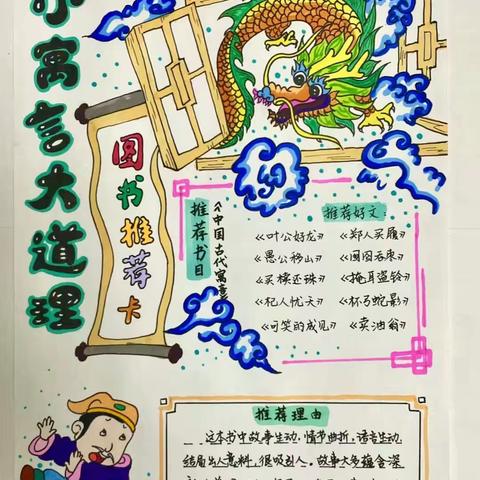 小寓言大道理
图书推荐卡
推荐书目
《中国古代寓言
推荐好文：
《叶公好龙》 《郑人买履》
《愚公移山》 《囫囵吞枣》
《买椟还珠》 《掩耳盗铃》
《杞人忧天》 《杯弓蛇影》
《可笑的成见》 《卖油翁》
推荐理由
这本书中故事生动，情节曲折，语言生动，
结局出人意料，很吸引人。故事大多蕴含深